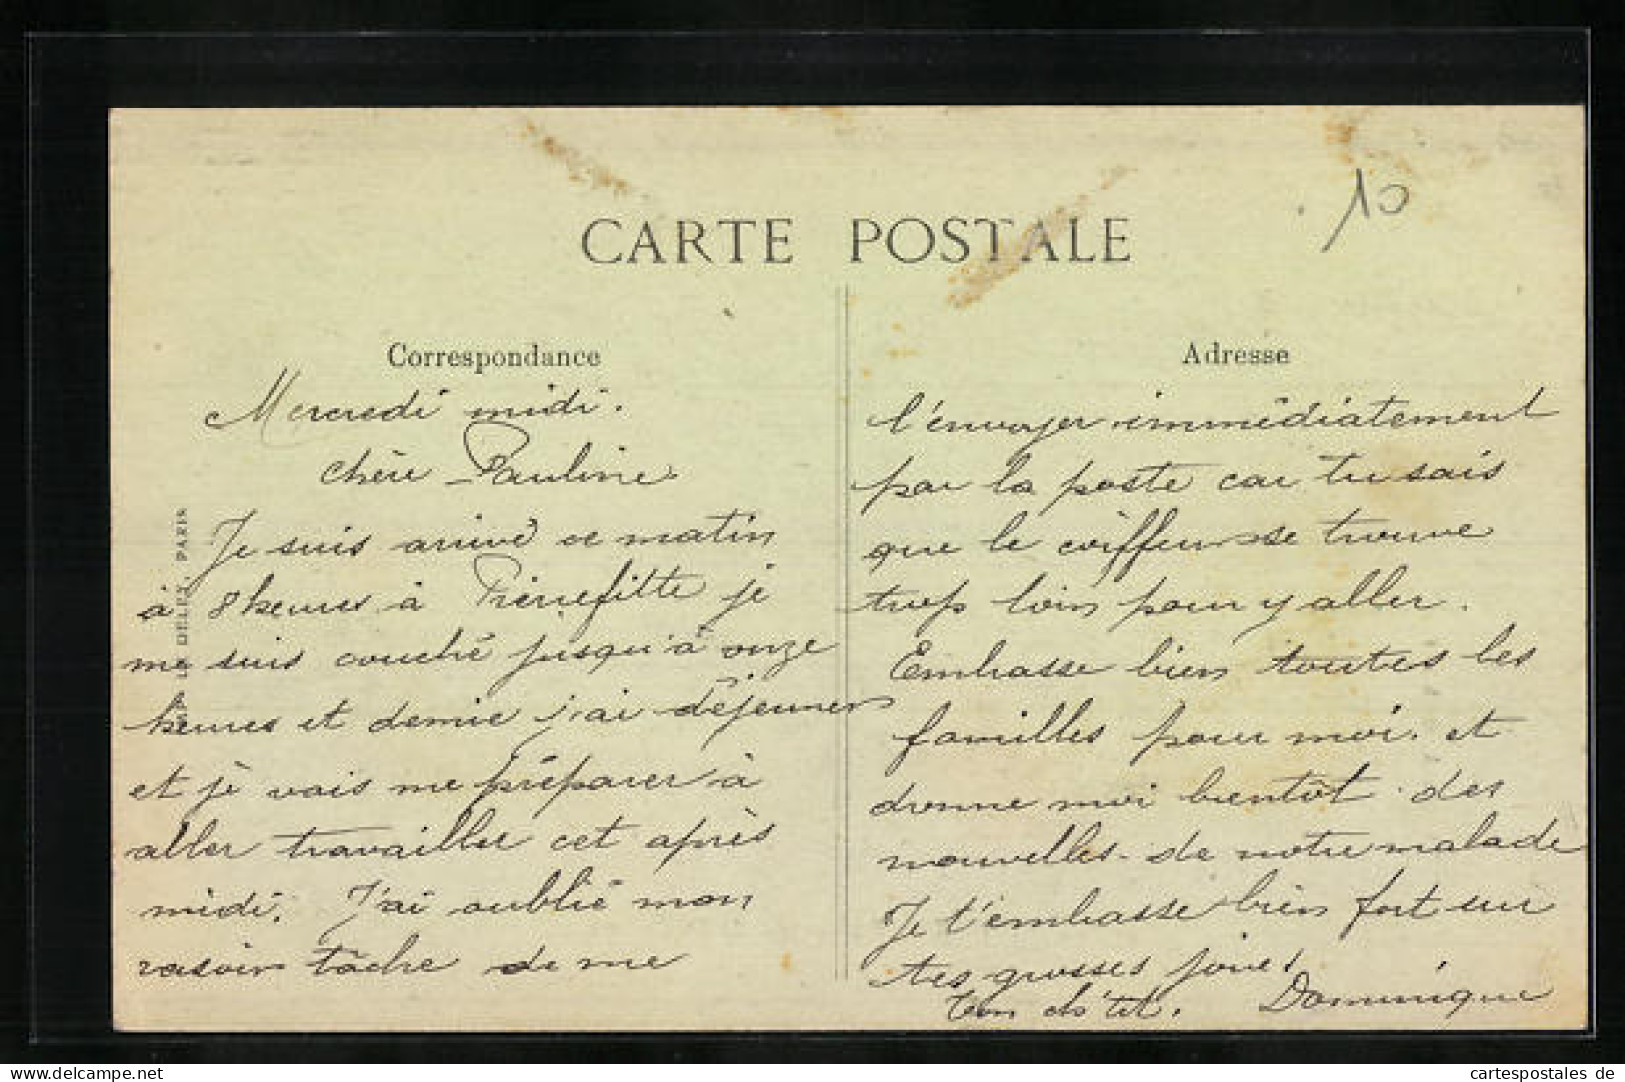 10
CARTE POSTALE
Correspondance
Mercredi midi.
chère Pauline
Je suis arrivé ce matin
à 8 heures à Pierrefitte je
me suis couché jusqu'à onze
heures et demie j'ai déjeuner
et je vais me préparer à
aller travailler cet après
midi. J'ai oublié mon
rasoir tâche de me
Adresse
l'envoyer immédiatement
par la poste car tu sais
que le coiffeur se trouve
trop loin pour y aller.
Embrasse bien toutes les
familles pour moi. et
donne moi bientôt des
nouvelles de notre malade
Je t'embrasse bien fort sur
tes grosses joues
Ton Dominique
DELEY, PARIS
cartespostales de
www.delcampe.net/cartophilie